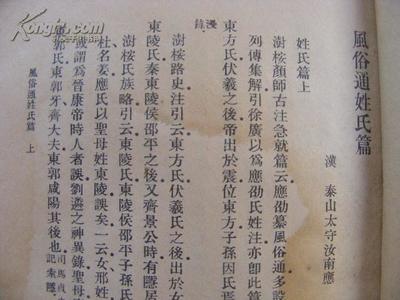 風俗通姓氏篇
漢 泰山太守汝南應
姓氏篇上
澍桉顏師古注急就篇云應劭纂風俗通多設
列傳集解引徐廣以為應劭氏姓注亦即此篇
漫錄
東方氏伏羲之後帝出於震位東方子孫因氏焉
澍桉路史注引云東方氏伏羲氏之後出於女
東陵氏秦東陵侯邵平之後又齊景公時有隱居
澍桉氏族略引云東陵氏東陵侯邵平子孫氏
杜名姜應氏以聖母姓東陵誤矣一云女邢姓
或謂為晉康帝時人者誤劉遴之神異錄聖母
東郭氏東郭牙齊大夫東郭咸陽其後也
風俗通姓氏篇 上